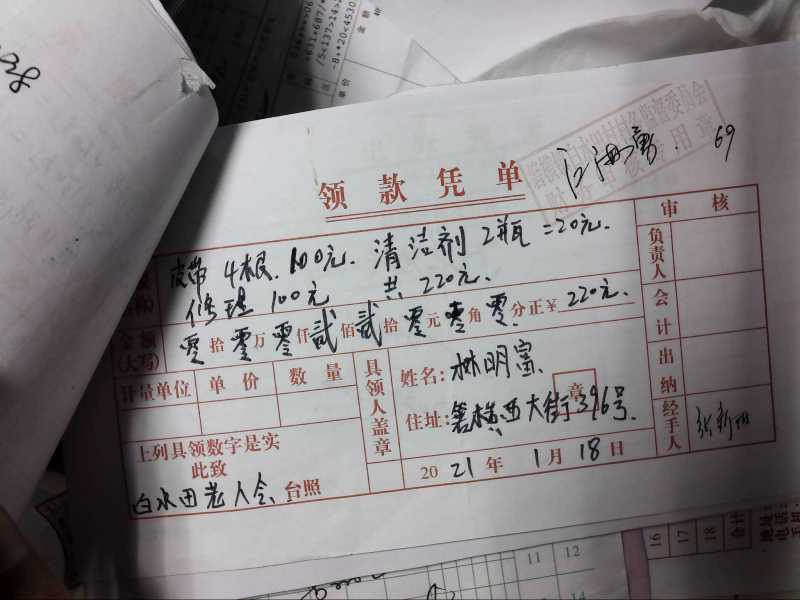 69
领款凭单
审核
皮带 4根. 100元. 清洁剂 2瓶 =20元.
修理 100元 共 220元.
金额(大写) 零拾零万零仟贰佰贰拾零元零角零分正¥220元.
负责人
会计
出纳
经手人
计量单位 单价 数量
具领人盖章
姓名: 林明富
章
住址: 箬横西大街396号.
上列具领数字是实
此致
白水田老人会 台照
2021年1月18日
11 12
14
16
17
18
合计
地址:
电话:
手机
单价
金额